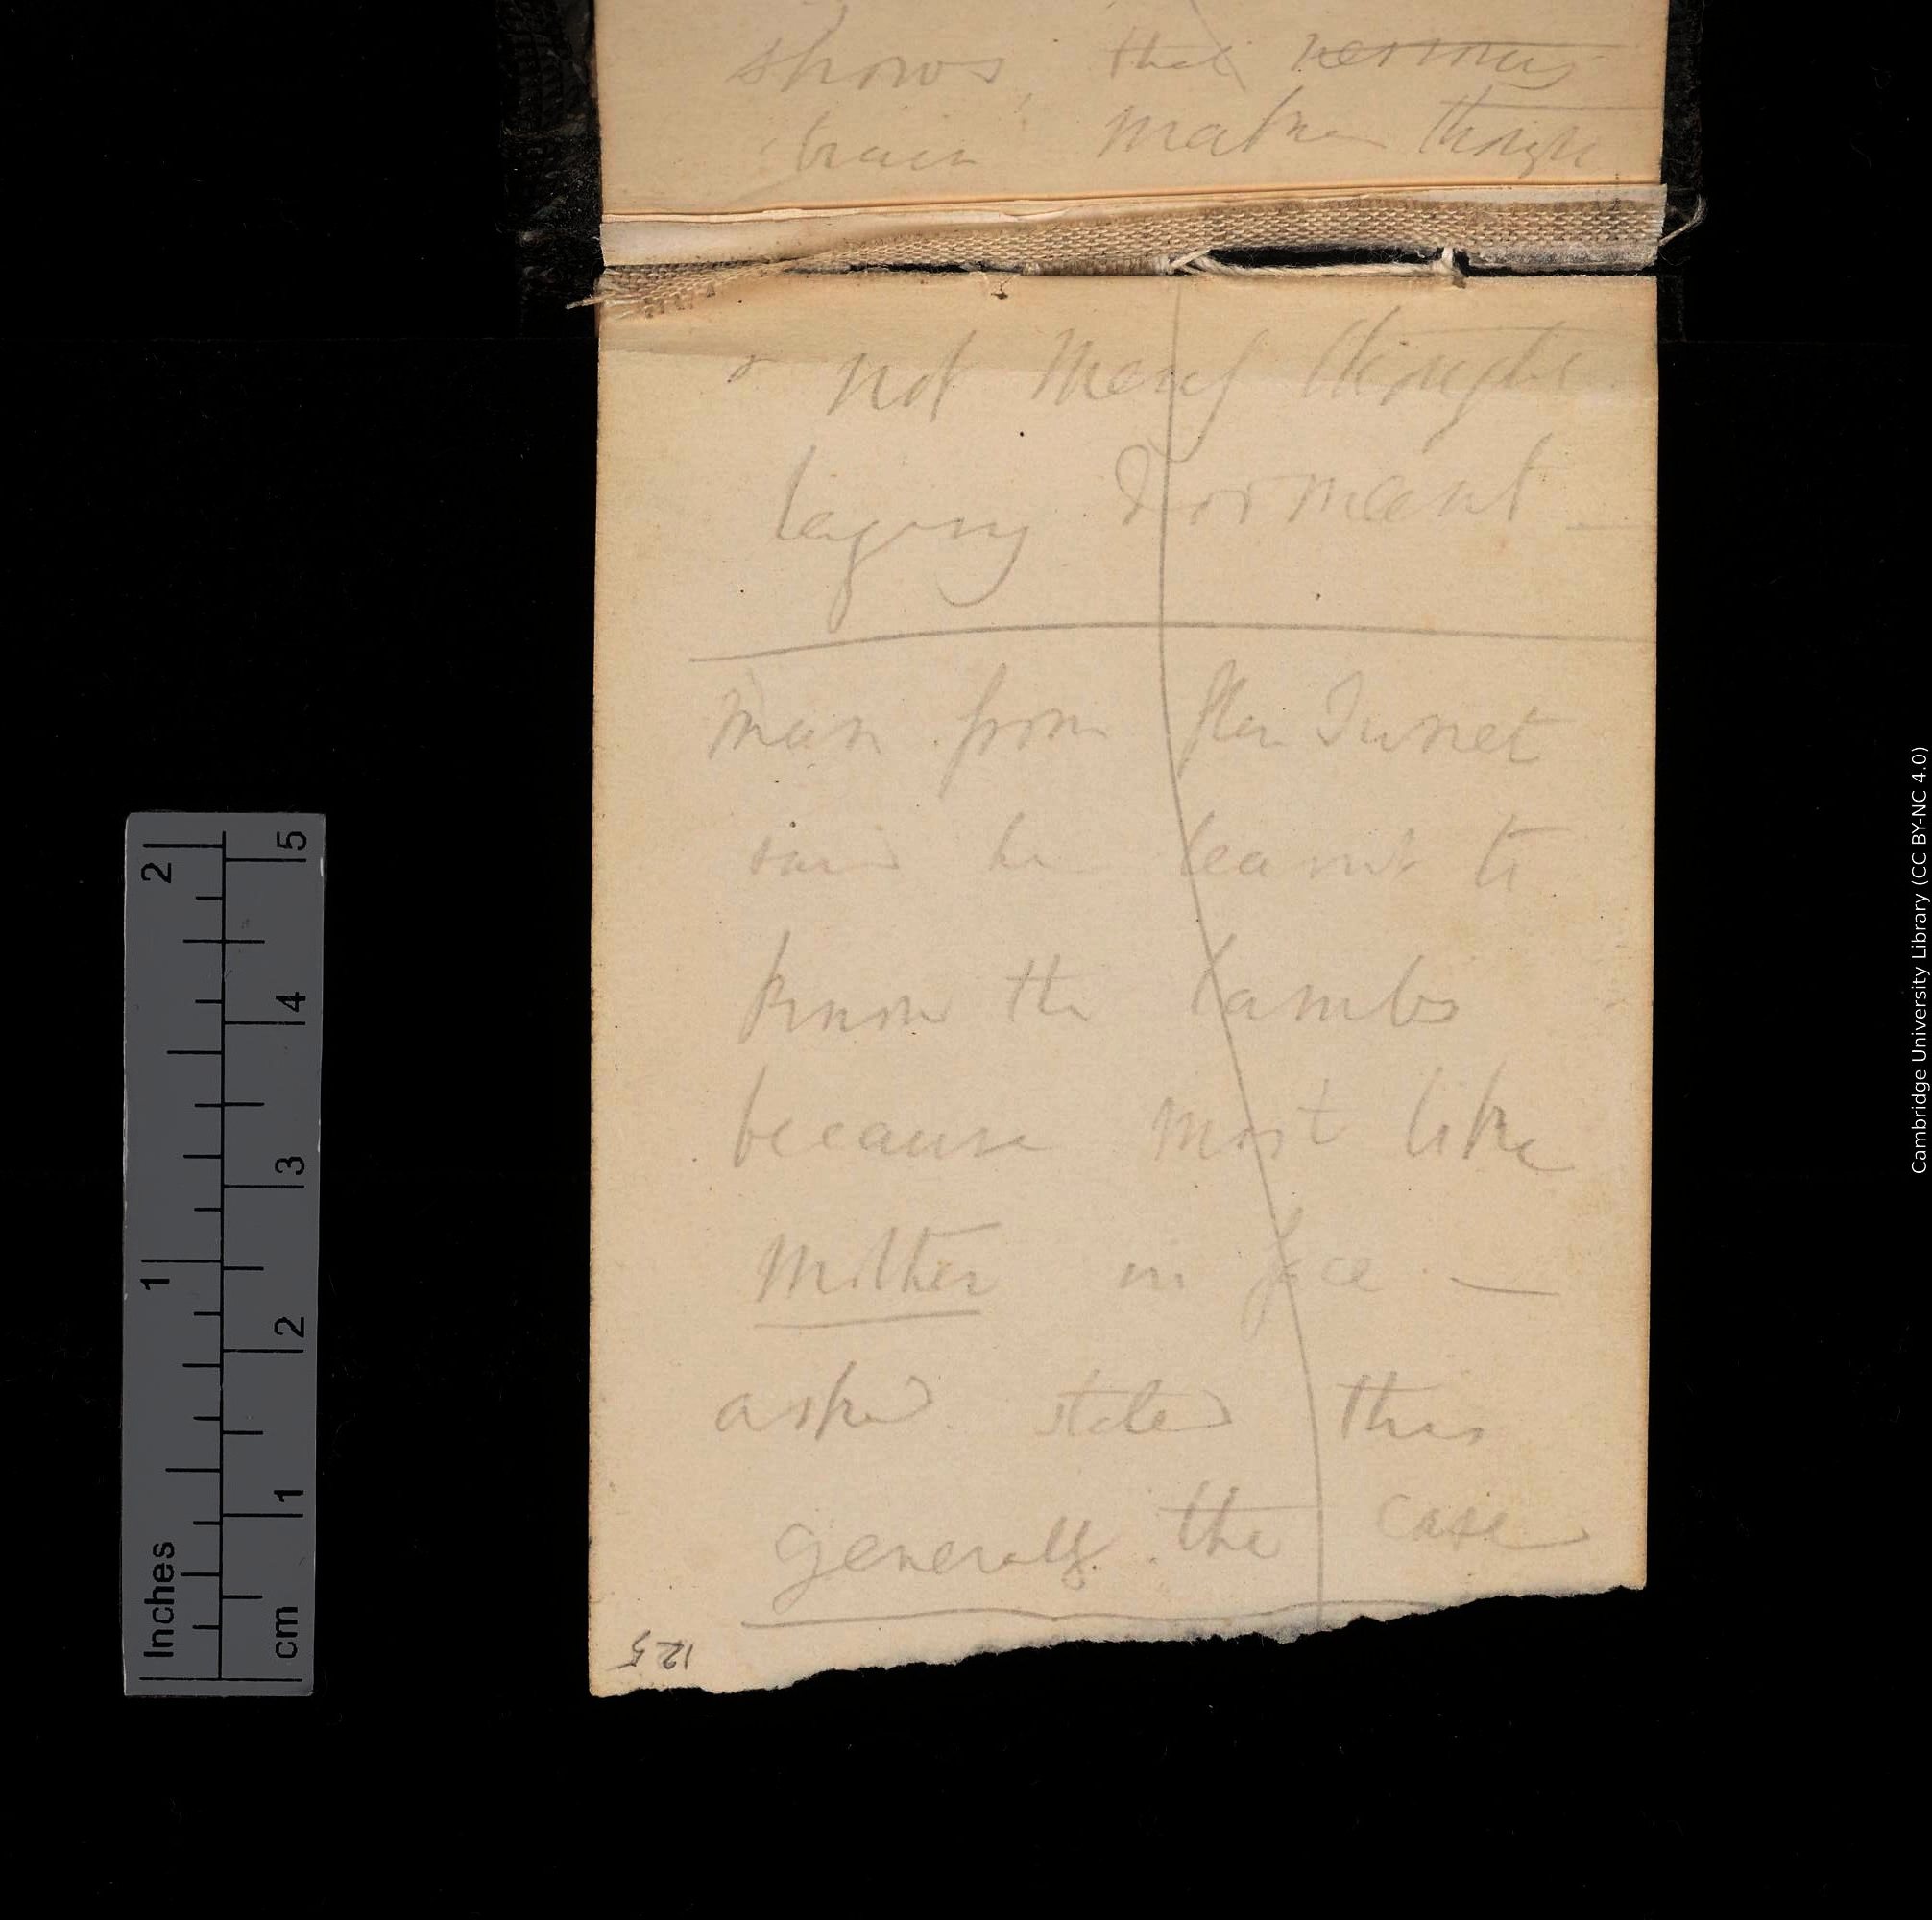 shows, that nervous
brain makes thought
& not merely thoughts
laying dormant —
Man from Glen Turret
said he learnt to
know the lambs
because most like
mother in face —
asked stated this
generally the case
125
Inches
1
2
cm
1
2
3
4
5
Cambridge University Library (CC BY-NC 4.0)